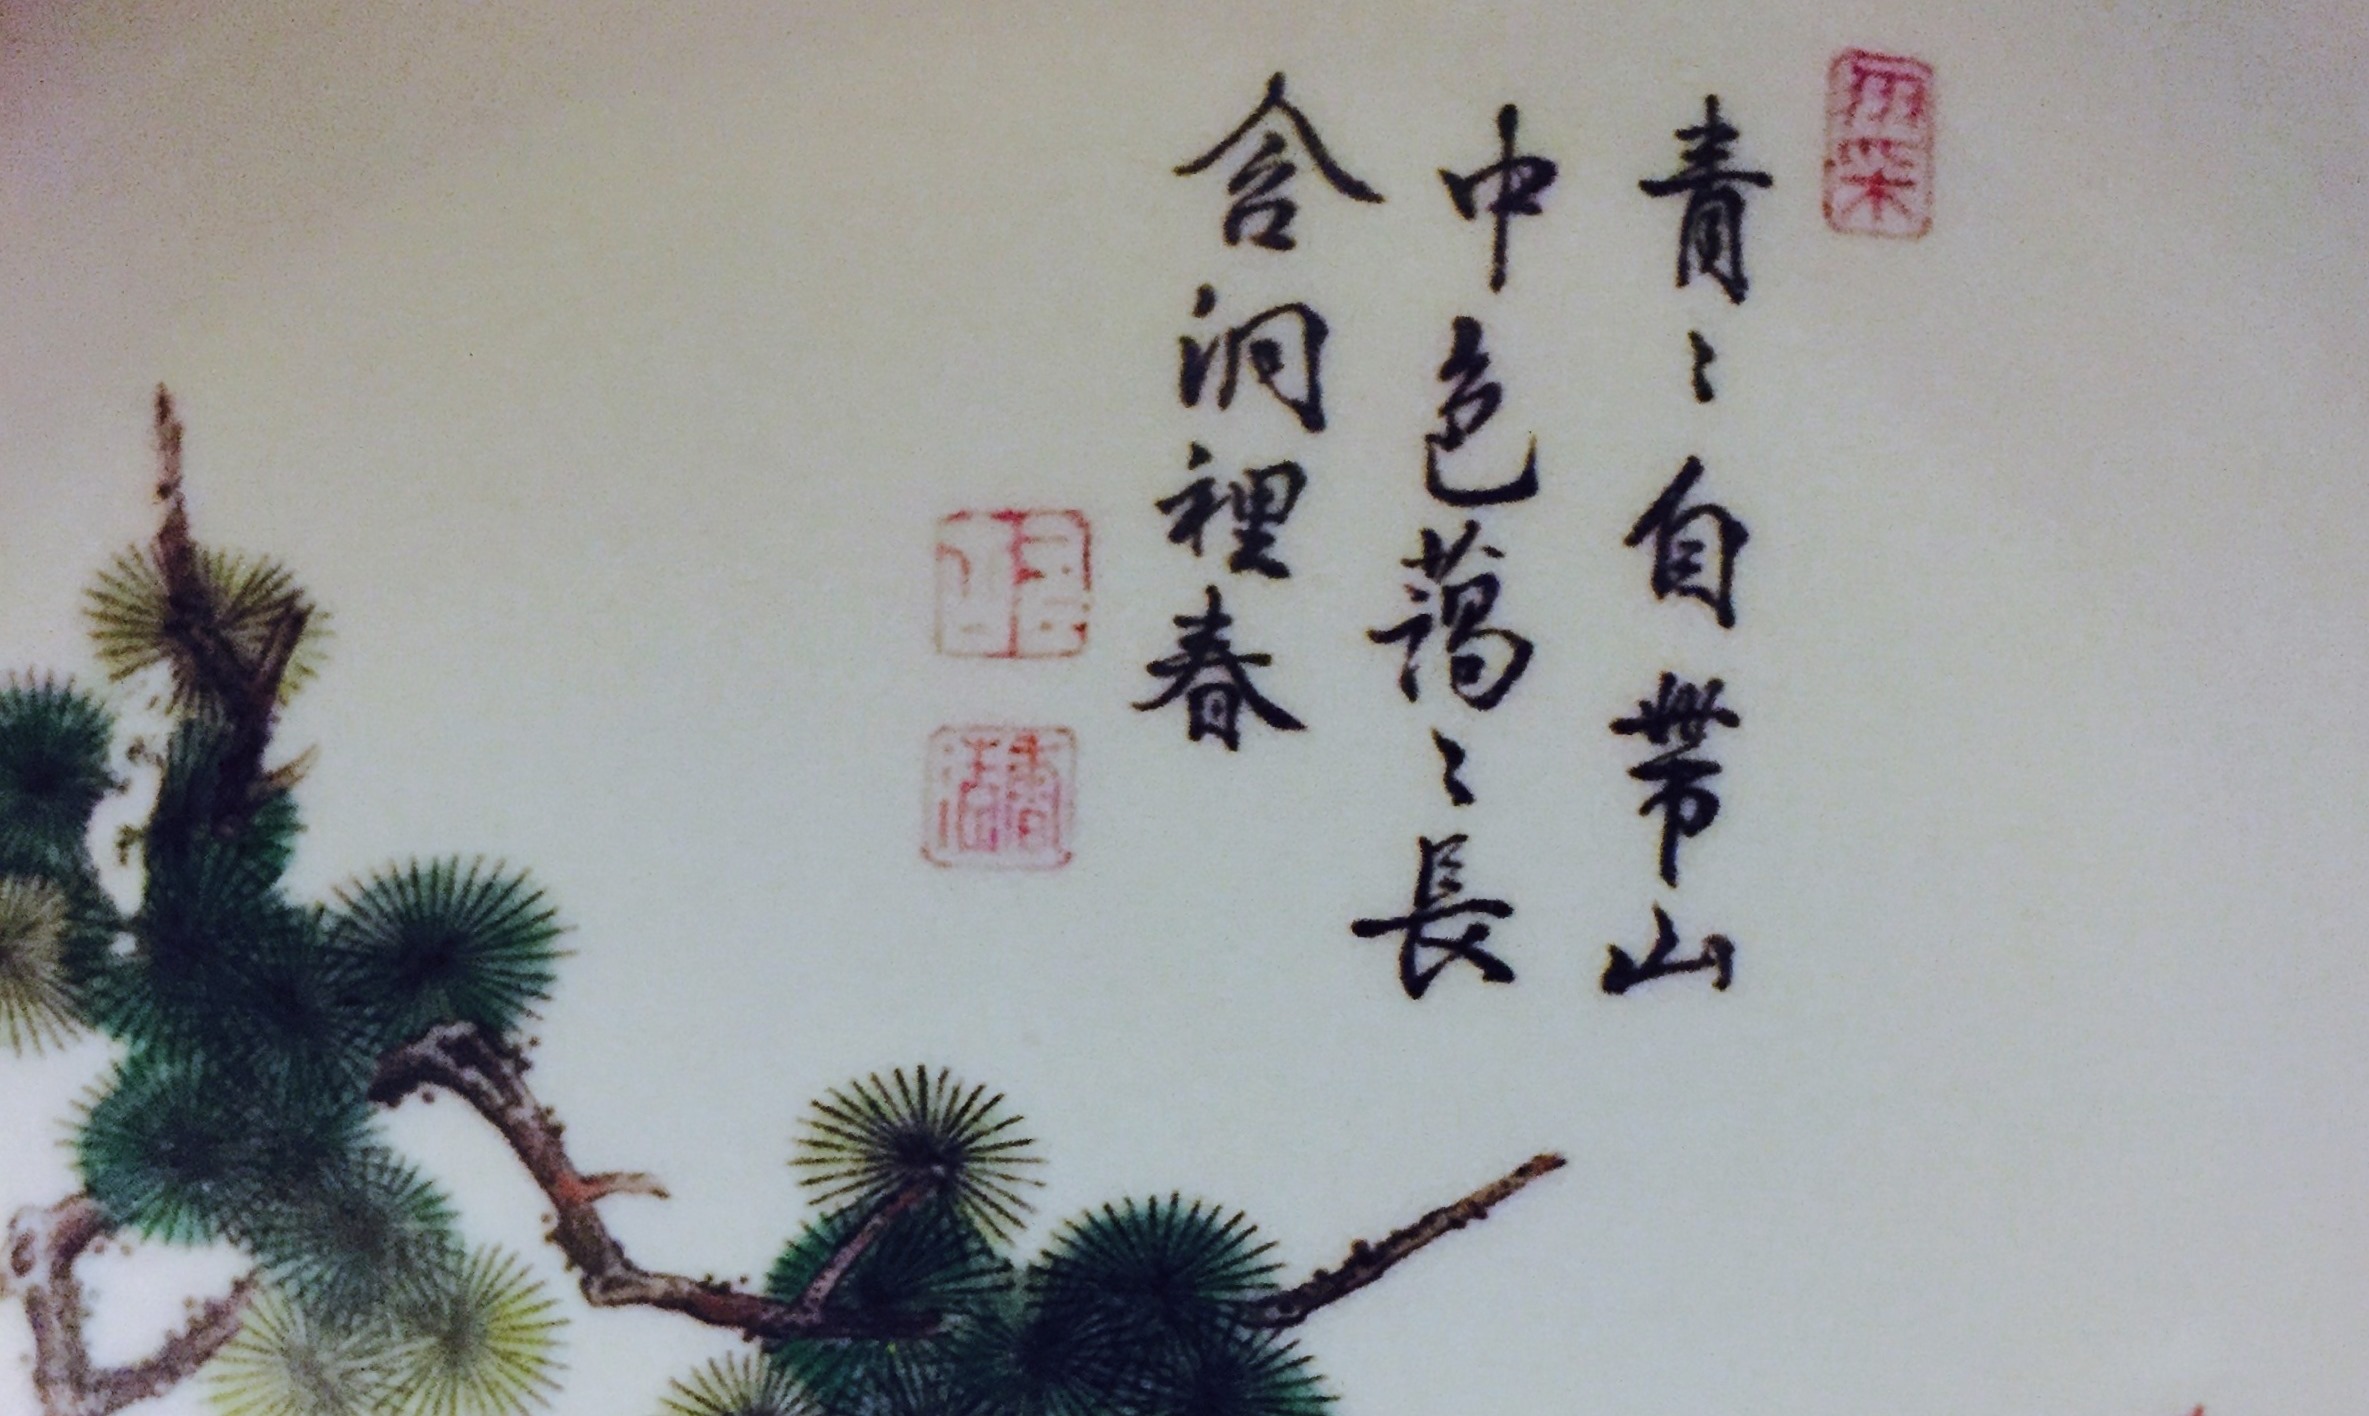 青〻自帶山
中色藹〻長
含洞裡春